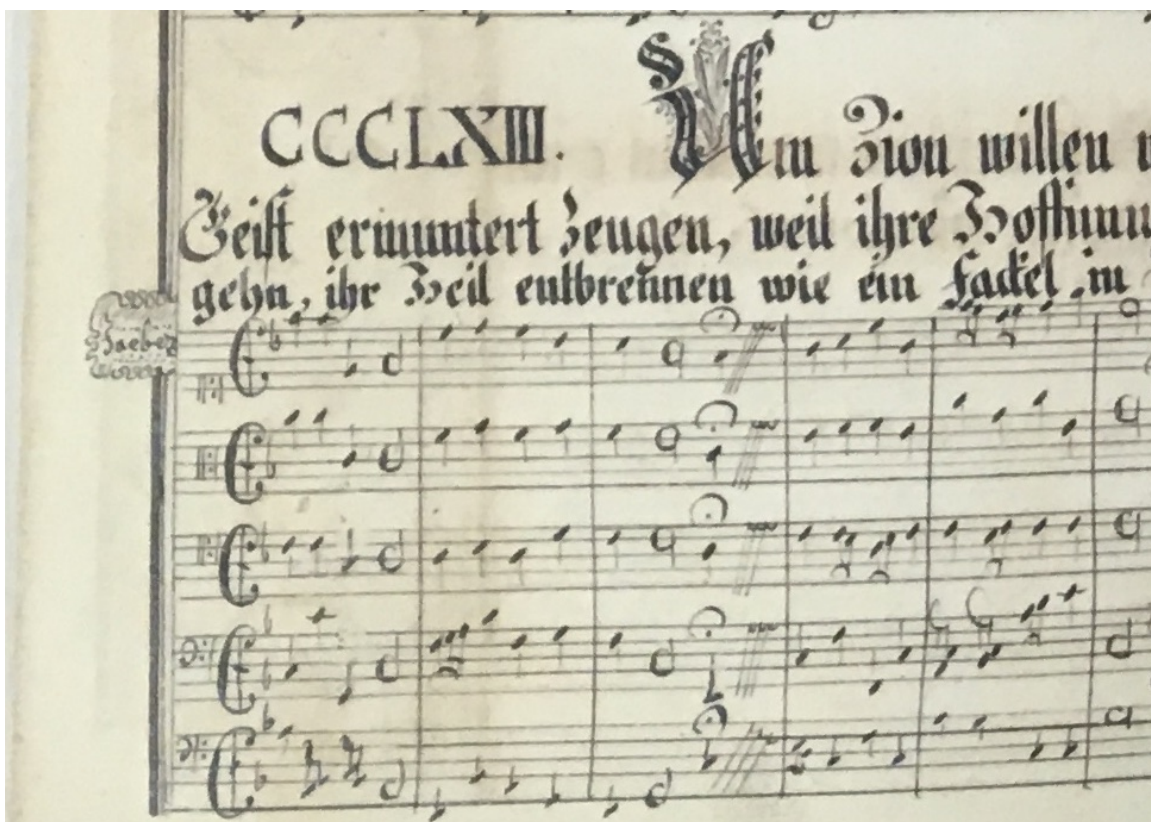 CCCLXIII. Um Zion willen
Geist ermuntert Zeugen, weil ihre Hoffnun
gehn, ihr Heil entbrennen wie ein Fackel in
Jaebez